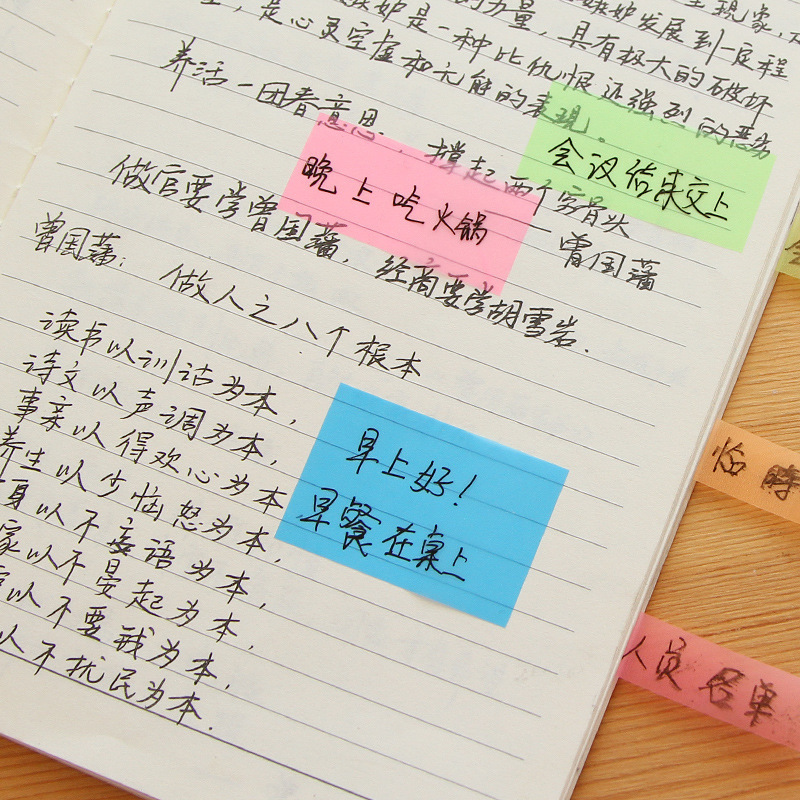 现象,
嫉妒发展到一定程
的力量,具有极大的破坏
嫉妒是一种比仇恨还强烈的恶劣
,是心灵空虚和无能的表现。
养活一团春意思,撑起两个穷骨头
——曾国藩
做官要学曾国藩,经商要学胡雪岩.
曾国藩:做人之八个根本
读书以训诂为本,
诗文以声调为本,
事亲以得欢心为本
养生以少恼怒为本,
身以不妄语为本,
家以不晏起为本,
以不要钱为本,
以不扰民为本.
会议结束交上
晚上吃火锅
早上好!
早餐在桌上
临時
人员名单